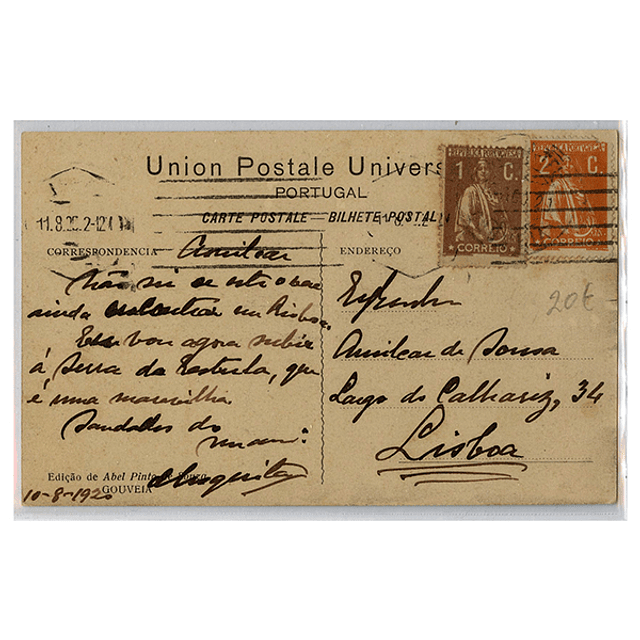 Union Postale Univers
PORTUGAL
CARTE POSTALE — BILHETE POSTAL
REPUBLICA PORTUGUESA
1 C.
CORREIO
REPUBLICA PORTUGUESA
2½ C.
CORREIO
11.8.20.2-12
CORRESPONDENCIA
ENDEREÇO
Amilcar
Não sei se este o vae
ainda encontrar em Lisboa.
Eu vou agora subir
á Serra da Estrela, que
é uma maravilha.
Saudades do
mano:
Edição de Abel Pinto de Sousa
GOUVEIA
10-8-1920
20€
Amilcar de Sousa
Largo do Calhariz, 34
Lisboa